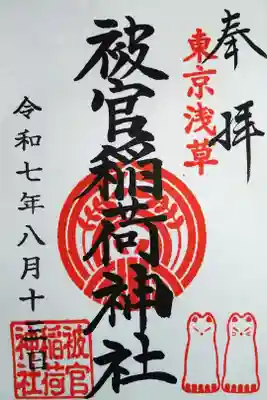 奉拝
東京浅草
被官稲荷神社
令和七年八月
被官
稲荷
神社